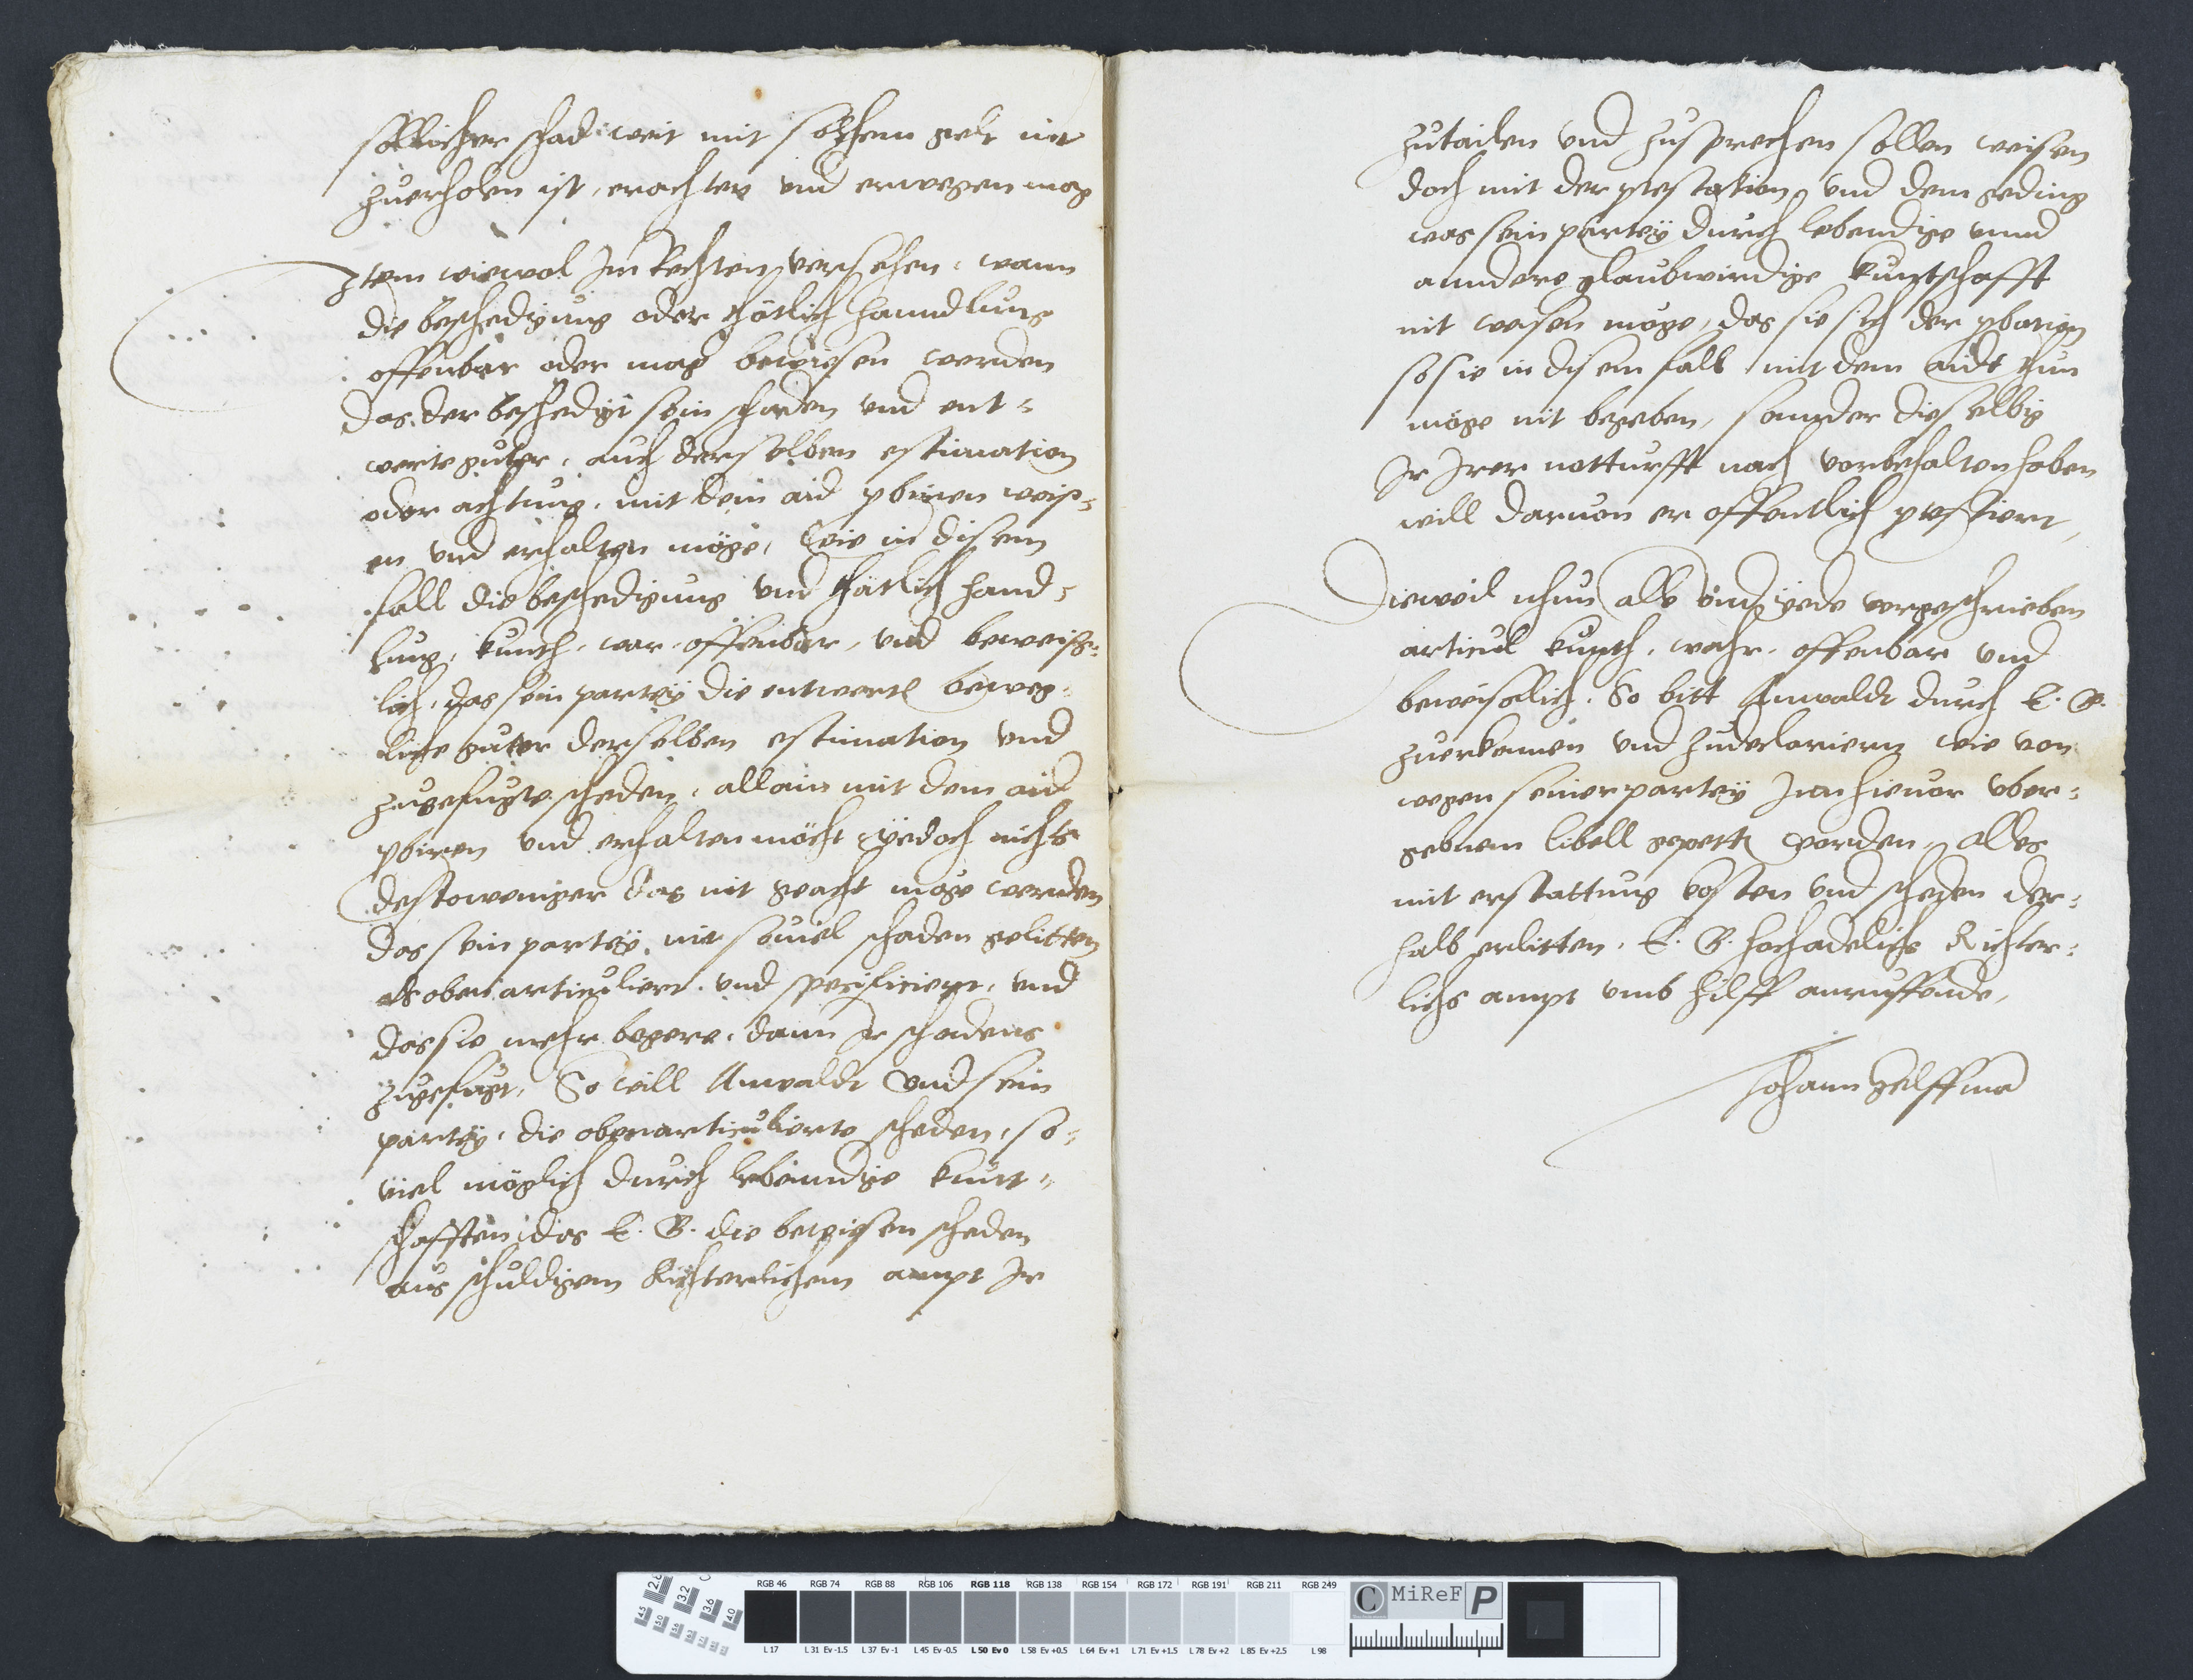 sollicher schad weit mit solchem gelt nit
zuerholen ist, erachten und erwegen mag
Item wiewol Im Rechten versehen, wann
die beschedigung oder thätlich hanndlung
offenbar oder mag bewiesen werden
das der beschedigt sein schaden und ent-
werte guter, auch derselben estimation
oder achtung, mit dem aid pbiren weiß-
en und erhalten möge, Wie in disem
fall die beschedigung und thätlich hand-
lung, kunth, war, offenbar, und beweiß-
lich, das sein partey die entwerte beweg-
liche guter derselben estimation und
zugefugte scheden, allain mit dem aid
pbiren und erhalten möcht yedoch nichts
destoweniger das nit geacht möge werden
das sein partey nit souiel schaden gelitten
als oben articuliert und specificiert, und
das sie mehr begere, dann Ir schadens
zugefugt, So will Anwaldt und sein
partey, die obenarticulierte scheden, so-
viel möglich durch lebenndige kunt-
schafften das E. G. die bewisen scheden
aus schuldigem Richterlichem ampt Ir
zutailen und zusprechen sollen weisen
doch mit der ptestation und dem geding
was sein partey durch lebendige unnd
anndere glaubwirdige kuntschafft
nit weisen möge, das sie sich der pbation
so sie in disem fall mit dem aidt thun
möge nit begeben, sonnder dieselbig
Ir Irer notturfft nach vorbehalten haben
will daruon er offentlich ptestiert,
Dieweil nhun alle und yede vorgeschrieben
articul kunth, wahr, offenbar und
beweislich, So bitt Anwaldt durch E. G.
zuerkennen und zudeclariern wie von
wegen seiner partey Inn hieuor uber-
gebnem libell gepetten worden, alles
mit erstattung costen und scheden der-
halb erlitten, E. G. hochadelichs Richter-
lichs ampt umb hilff anruffende,
Johann Helffman
RGB 46 RGB 74 RGB 88 RGB 106 RGB 118 RGB 138 RGB 154 RGB 172 RGB 191 RGB 211 RGB 249
C MiReF P
L 17 L 31 Ev -1.5 L 37 Ev -1 L 45 Ev -0.5 L 50 Ev 0 L 58 Ev +0.5 L 64 Ev +1 L 71 Ev +1.5 L 78 Ev +2 L 85 Ev +2.5 L 98